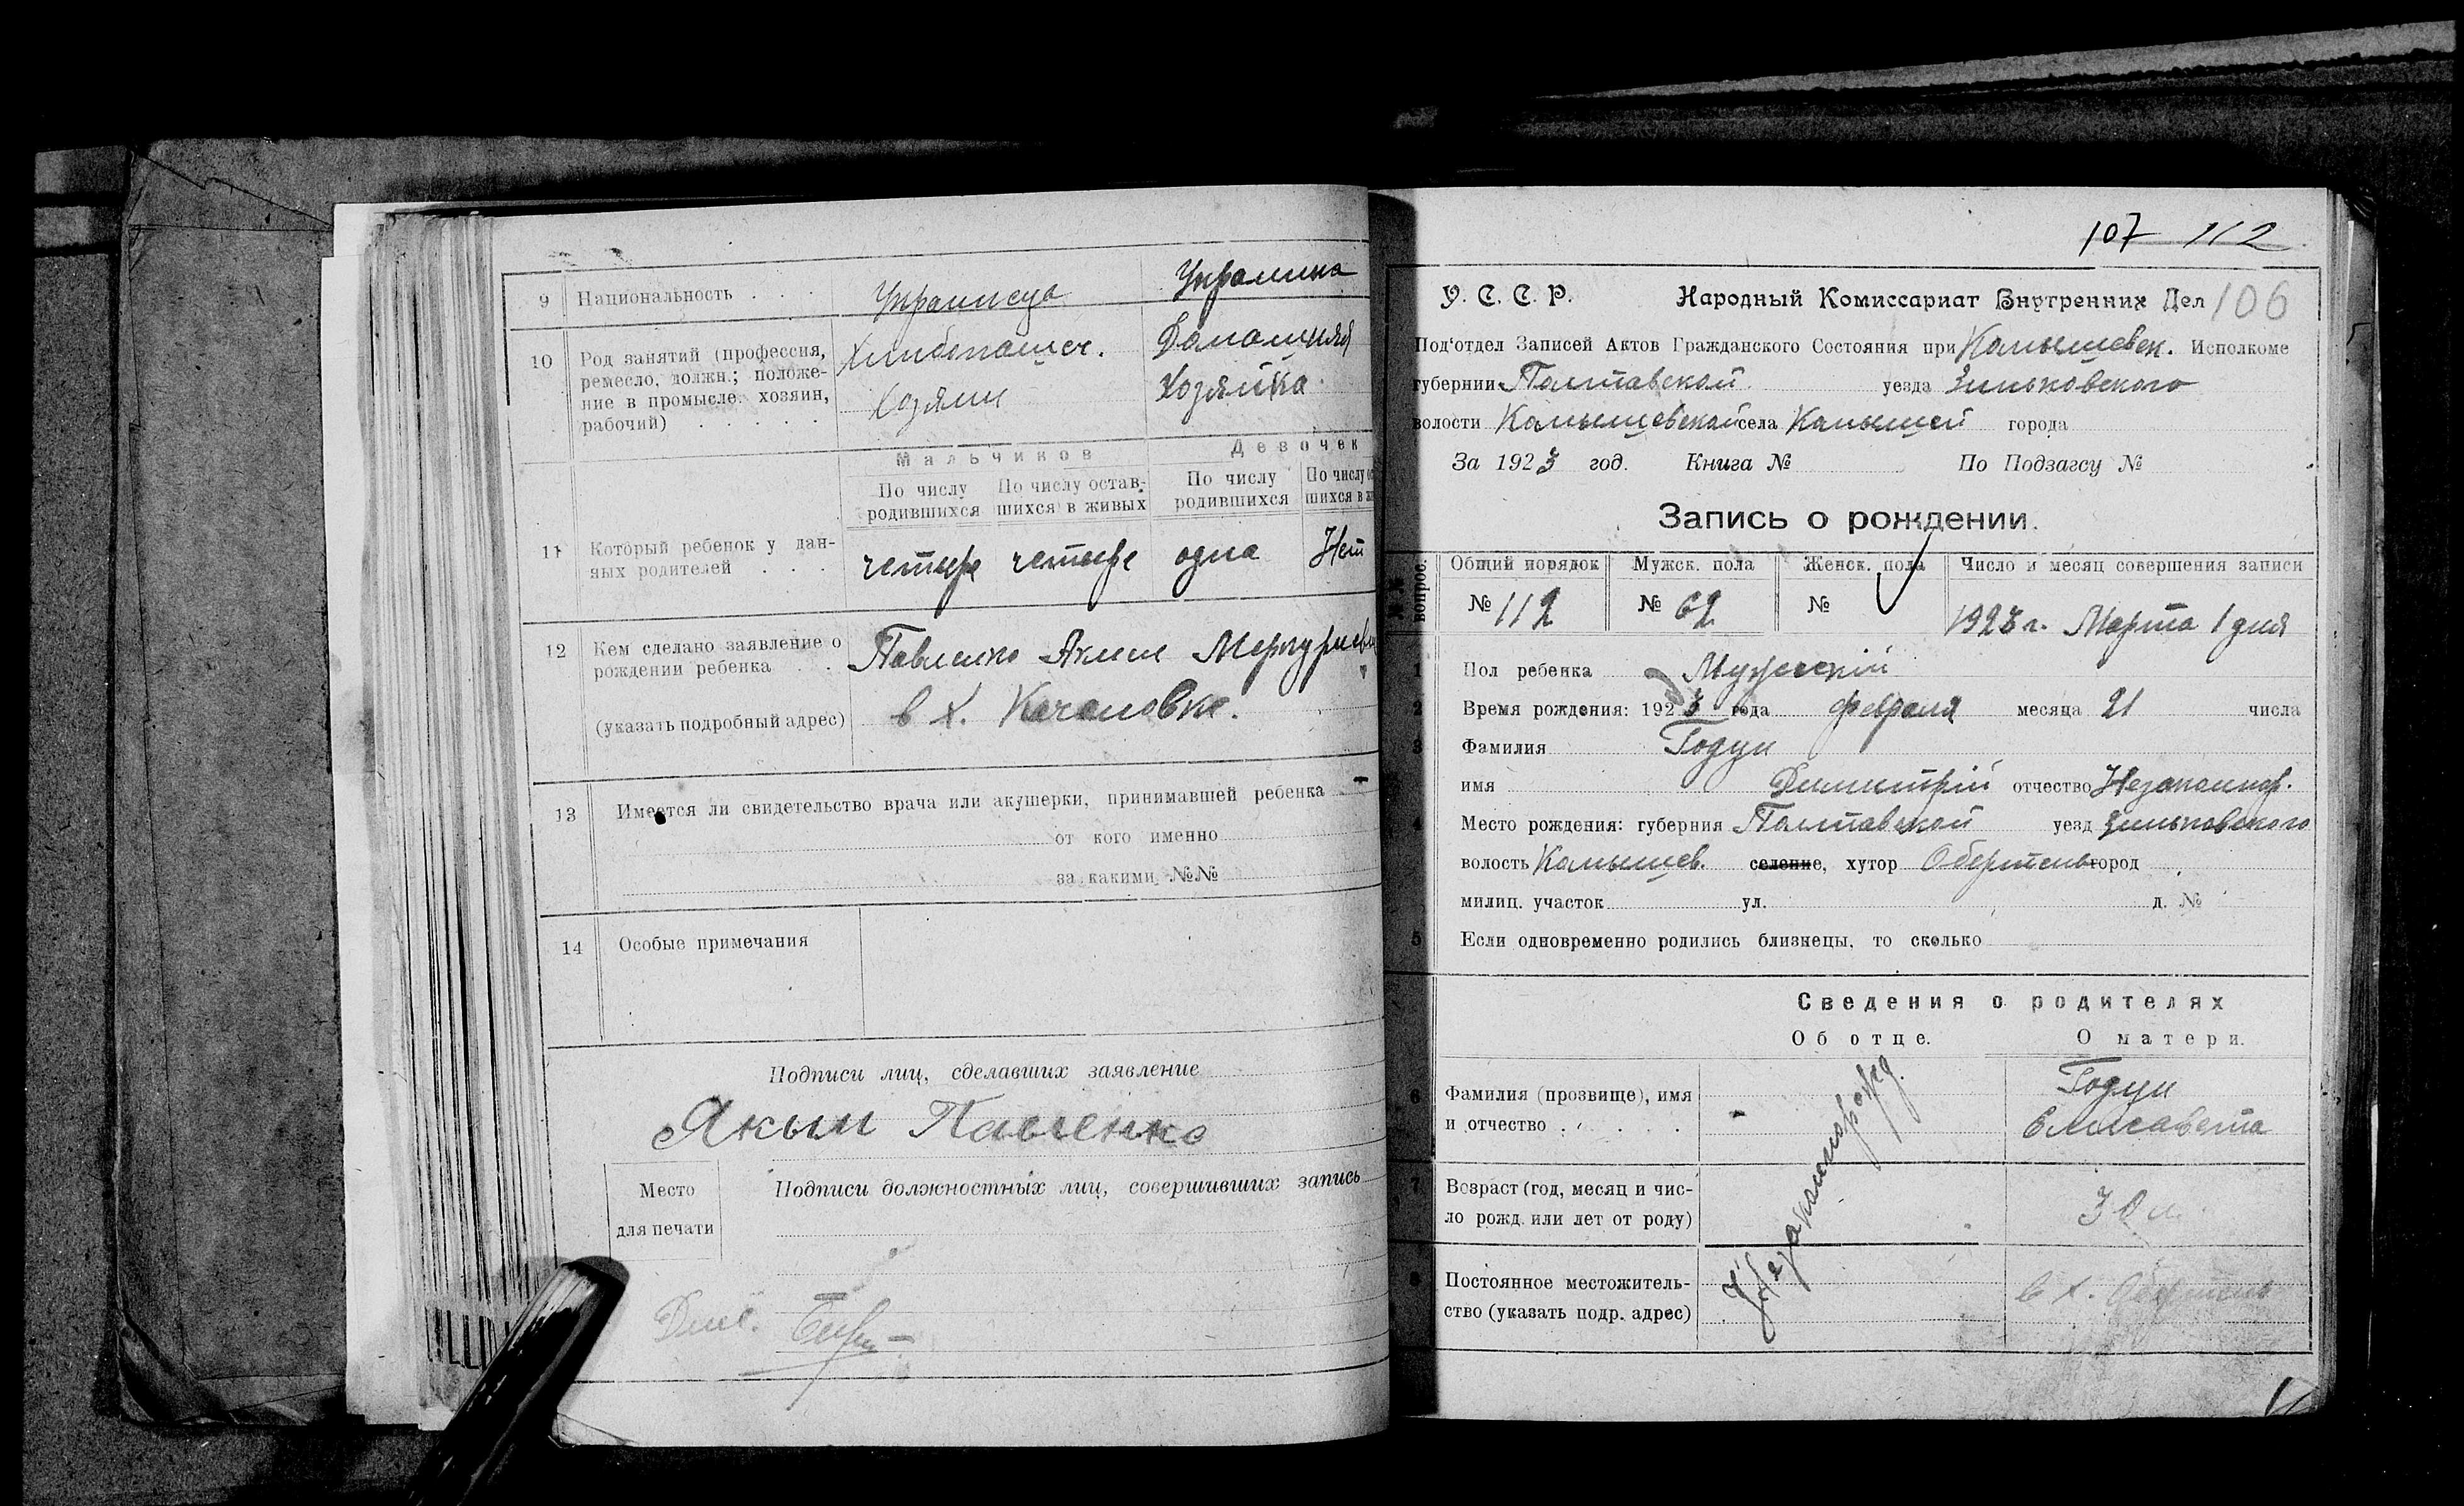 9 Национальность . . . Украинец Украинка
10 Род занятий (профессия, ремесло, должн.; положение в промысле: хозяин, рабочий) . . . . . Хлибопашец. Домашняя
Хозяин Хозяйка
Мальчиков Девочек
По числу родившихся По числу оставшихся в живых По числу родившихся По числу
11 Который ребенок у данных родителей . . . четыре четыре одна Нет
12 Кем сделано заявление о рождении ребенка . . Павленко Аким
(указать подробный адрес) в х. Качановке.
13 Имеется ли свидетельство врача или акушерки, принимавшей ребенка —
от кого именно
за какими №№
14 Особые примечания
Подписи лиц, сделавших заявление
Яким Павленко
Место для печати
Подписи должностных лиц, совершивших запись
107 112
У. С. С. Р. Народный Комиссариат Внутренних Дел 106
Под'отдел Записей Актов Гражданского Состояния при Камышевск. Исполкоме
губернии Полтавской уезда Зиньковского
волости Камышевской села Камышей города
За 1923 год. Книга № По Подзагсу №
Запись о рождении.
№№ вопрос. Общий порядок Мужск. пола Женск. пола Число и месяц совершения записи
№ 112 № 62 № 1923 г. Марта 1 дня
1 Пол ребенка Мужеский
2 Время рождения: 1923 года февраля месяца 21 числа
3 Фамилия Годун
имя Димитрій отчество
4 Место рождения: губерния Полтавской уезд Зиньковского
волость Камышев. селение, хутор город
милиц. участок ул. д. №
5 Если одновременно родились близнецы, то сколько
Сведения о родителях
Об отце. О матери.
6 Фамилия (прозвище), имя и отчество . . . . Годун
Елисавета
7 Возраст (год, месяц и число рожд. или лет от роду) 30 л.
8 Постоянное местожительство (указать подр. адрес) в х.